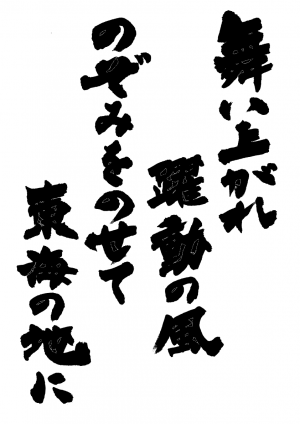 舞い上がれ
躍動の風
のぞみをのせて
東海の地に